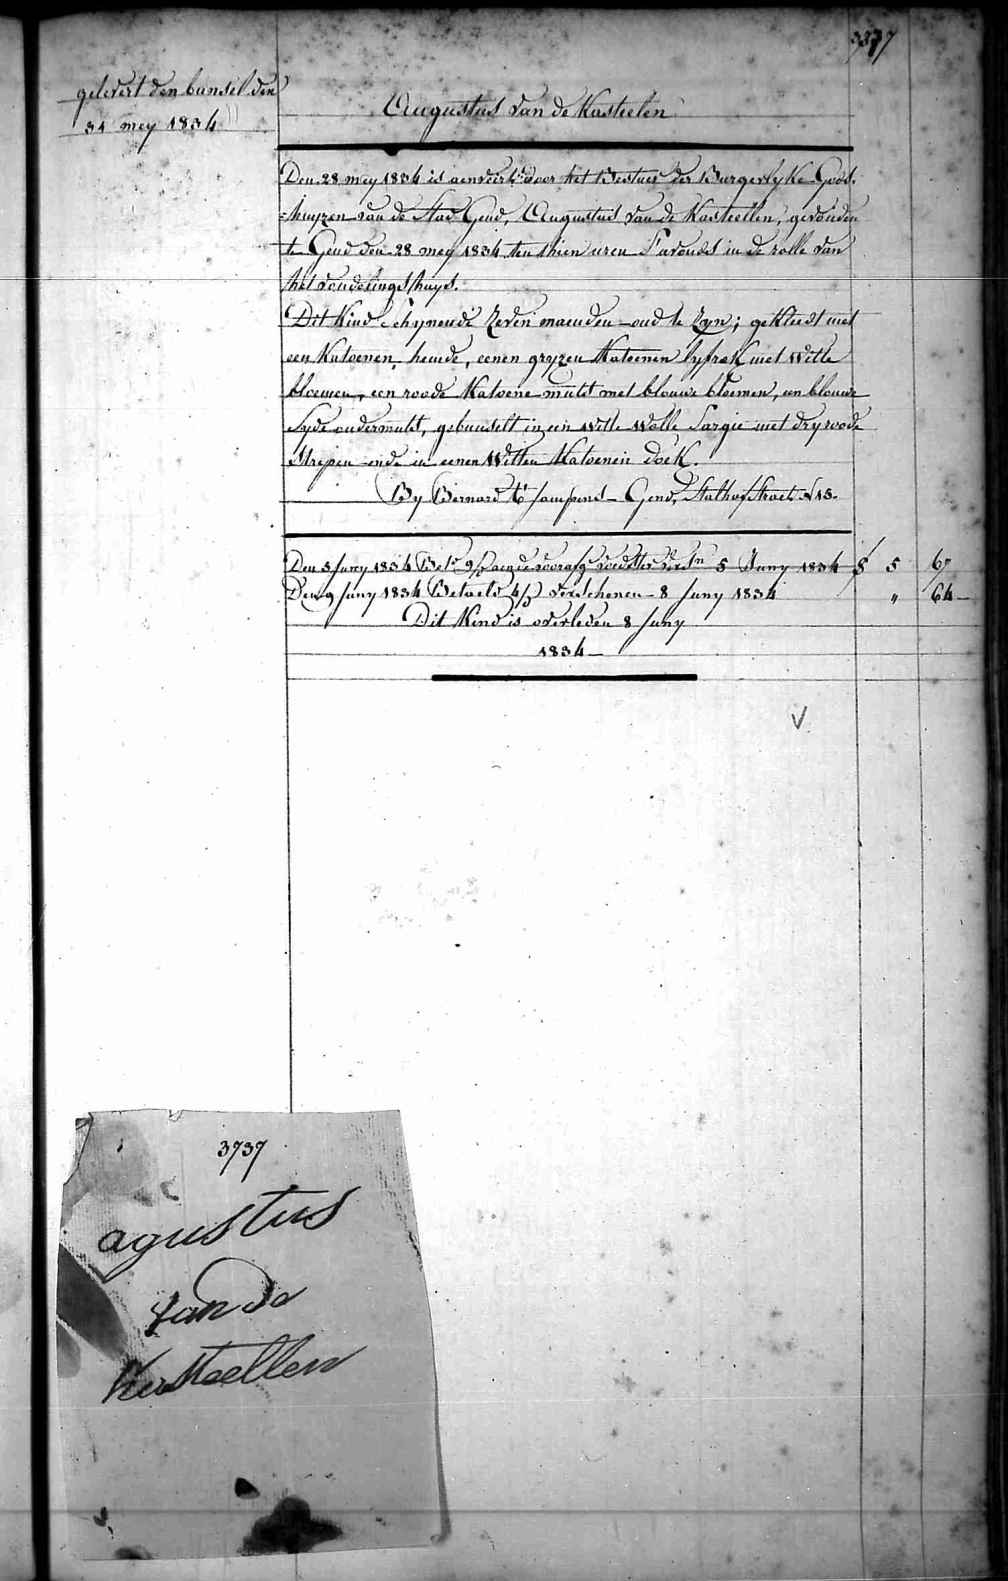 3737
gelevert den bunsel den
31 mey 1834
Augustus van de Kasteelen
Den 28 mey 1834 is aenveert door het Bestuer der Burgerlyke Gods-
=huyzen van de Stad Gend, Augustus van de Kasteellen, gevonden
te Gend den 28 mey 1834 ten thien uren s'avonds in de rolle van
het vondelingshuys.
Dit Kind schynende zeven maenden oud te zyn; gekleedt met
een Katoenen hemde, eenen gryzen Katoenen lyfrok met witte
bloemen, een roode Katoene mutst met blauwe bloemen, een blauwe
syde ondermutst, gebunselt in een witte wolle sargie met dry roode
strepen ende in eenen witten Katoenen doek.
By Bernard Gend, Stalhof Straet N 13.
Den 5 Juny 1834 Bet. voedster 5 Juny 1834 5 67
Den 9 Juny 1834 Betaeld verschenen 8 Juny 1834 " 64
Dit Kind is overleden 8 Juny
1834
V
3737
agustus
van de
Kasteellen